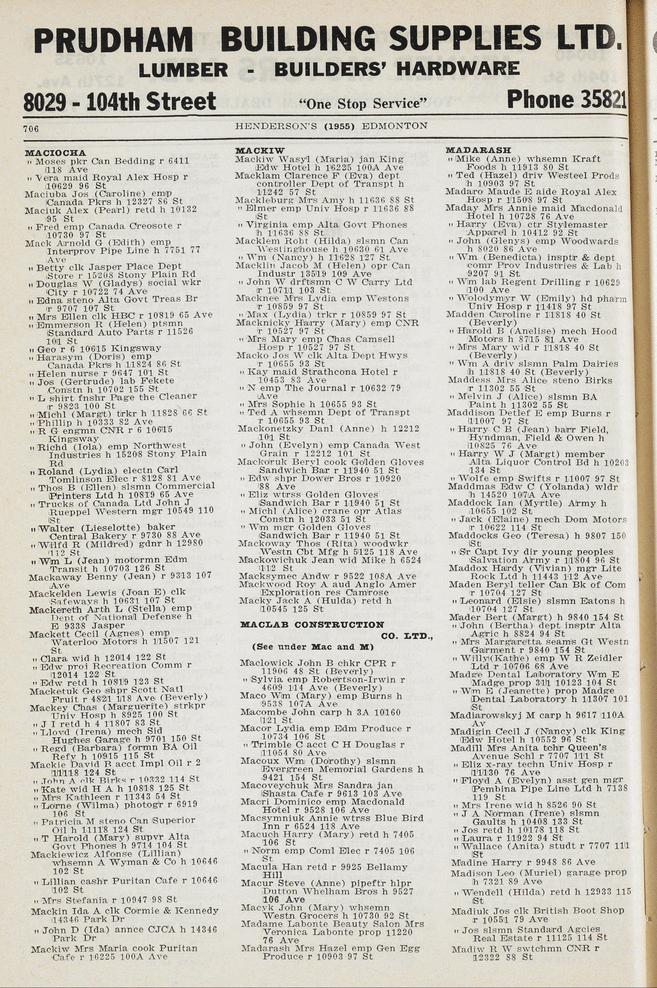 PRUDHAM BUILDING SUPPLIES LTD.
LUMBER - BUILDERS' HARDWARE
8029 - 104th Street "One Stop Service" Phone 35821
706 HENDERSON'S (1955) EDMONTON
MACIOCHA
" Moses pkr Can Bedding r 6411
118 Ave
" Vera maid Royal Alex Hosp r
10629 96 St
Maciuba Jos (Caroline) emp
Canada Pkrs h 12327 86 St
Maciuk Alex (Pearl) retd h 10132
95 St
" Fred emp Canada Creosote r
10730 97 St
Mack Arnold G (Edith) emp
Interprov Pipe Line h 7751 77
Ave
" Betty clk Jasper Place Dept
Store r 15208 Stony Plain Rd
" Douglas W (Gladys) social wkr
City r 10722 74 Ave
" Edna steno Alta Govt Treas Br
r 9707 107 St
" Mrs Ellen clk HBC r 10819 65 Ave
" Emmerson R (Helen) ptsmn
Standard Auto Parts r 11526
101 St
" Geo r 6 10615 Kingsway
" Harasym (Doris) emp
Canada Pkrs h 11824 86 St
" Helen nurse r 9647 101 St
" Jos (Gertrude) lab Fekete
Constn h 10702 155 St
" L shirt fnshr Page the Cleaner
r 9823 100 St
" Michl (Margt) trkr h 11828 66 St
" Phillip h 10333 82 Ave
" R G engmn CNR r 6 10615
Kingsway
" Richd (Iola) emp Northwest
Industries h 15208 Stony Plain
Rd
" Roland (Lydia) electn Carl
Tomlinson Elec r 8128 81 Ave
" Thos B (Ellen) slsmn Commercial
Printers Ltd h 10819 65 Ave
" Trucks of Canada Ltd John J
Rueppel Western mgr 10549 110
St
" Walter (Lieselotte) baker
Central Bakery r 9730 88 Ave
" Wilfd R (Mildred) gdnr h 12980
112 St
" Wm L (Jean) motormn Edm
Transit h 10703 126 St
Mackaway Benny (Jean) r 9313 107
Ave
Mackelden Lewis (Joan E) clk
Safeways h 10631 107 St
Mackereth Arth L (Stella) emp
Dept of National Defense h
E 9338 Jasper
Mackett Cecil (Agnes) emp
Waterloo Motors h 11507 121
St
" Clara wid h 12014 122 St
" Edw proj Recreation Comm r
12014 122 St
" Edw retd h 10819 123 St
Macketuk Geo shpr Scott Natl
Fruit r 4821 118 Ave (Beverly)
Mackey Chas (Marguerite) strkpr
Univ Hosp h 8925 100 St
" J I retd h 4 11807 83 St
" Llwyd (Irena) mech Sid
Hughes Garage h 9701 150 St
" Regd (Barbara) formn BA Oil
Refy h 10915 115 St
Mackie David R acct Impl Oil r 2
11118 124 St
" John A clk Birks r 10332 114 St
" Kate wid H A h 10818 125 St
" Mrs Kathleen r 11343 54 St
" Lorne (Wilma) photogr r 6919
106 St
" Patricia M steno Can Superior
Oil h 11118 124 St
" T Harold (Mary) supvr Alta
Govt Phones h 9714 104 St
Mackiewicz Alfonse (Lillian)
whsemn A Wyman & Co h 10646
102 St
" Lillian cashr Puritan Cafe r 10646
102 St
" Mrs Stefania r 10947 98 St
Mackin Ida A clk Cormie & Kennedy
14346 Park Dr
" John D (Ida) annce CJCA h 14346
Park Dr
Mackiw Mrs Maria cook Puritan
Cafe r 16225 100A Ave
MACKIW
Mackiw Wasyl (Maria) jan King
Edw Hotel h 16225 100A Ave
Macklam Clarence F (Eva) dept
controller Dept of Transpt h
11242 57 St
Mackleburg Mrs Amy h 11636 88 St
" Elmer emp Univ Hosp r 11636 88
St
" Virginia emp Alta Govt Phones
h 11636 88 St
Macklem Robt (Hilda) slsmn Can
Westinghouse h 10630 61 Ave
" Wm (Nancy) h 11628 127 St
Macklin Jacob M (Helen) opr Can
Industr 13519 109 Ave
" John W drftsmn C W Carry Ltd
r 10711 103 St
Macknee Mrs Lydia emp Westons
r 10859 97 St
" Max (Lydia) trkr r 10859 97 St
Macknicky Harry (Mary) emp CNR
r 10527 97 St
" Mrs Mary emp Chas Camsell
Hosp r 10527 97 St
Macko Jos W clk Alta Dept Hwys
r 10655 93 St
" Kay maid Strathcona Hotel r
10453 83 Ave
" N emp The Journal r 10632 79
Ave
" Mrs Sophie h 10655 93 St
" Ted A whsemn Dept of Transpt
r 10655 93 St
Mackonetzky Danl (Anne) h 12212
101 St
" John (Evelyn) emp Canada West
Grain r 12212 101 St
Mackoruk Beryl cook Golden Gloves
Sandwich Bar r 11940 51 St
" Edw shpr Dower Bros r 10920
88 Ave
" Eliz wtrss Golden Gloves
Sandwich Bar r 11940 51 St
" Michl (Alice) crane opr Atlas
Constn h 12033 51 St
" Wm mgr Golden Gloves
Sandwich Bar r 11940 51 St
Mackoway Thos (Rita) woodwkr
Westn Cbt Mfg h 5125 118 Ave
Mackowichuk Jean wid Mike h 6524
112 St
Macksymec Andw r 9522 108A Ave
Mackwood Roy A aud Anglo Amer
Exploration res Camrose
Macky Jack A (Hulda) retd h
10545 125 St
MACLAB CONSTRUCTION
CO. LTD.,
(See under Mac and M)
Maclowick John B chkr CPR r
11906 48 St (Beverly)
" Sylvia emp Robertson-Irwin r
4609 114 Ave (Beverly)
Maco Wm (Mary) emp Burns h
9538 107A Ave
Macombe John carp h 3A 10160
121 St
Macor Lydia emp Edm Produce r
10734 106 St
" Trimble C acct C H Douglas r
11054 80 Ave
Macoux Wm (Dorothy) slsmn
Evergreen Memorial Gardens h
9421 154 St
Macoveychuk Mrs Sandra jan
Shasta Cafe r 9613 103 Ave
Macri Dominico emp Macdonald
Hotel r 9528 106 Ave
Macsymniuk Annie wtrss Blue Bird
Inn r 6524 118 Ave
Macuch Harry (Mary) retd h 7405
106 St
" Norm emp Coml Elec r 7405 106
St
Macula Han retd r 9925 Bellamy
Hill
Macur Steve (Anne) pipeftr hlpr
Dutton Whelham Bros h 9527
106 Ave
Macyk John (Mary) whsemn
Westn Grocers h 10730 92 St
Madame Labonte Beauty Salon Mrs
Veronica Labonte prop 11220
76 Ave
Madarash Mrs Hazel emp Gen Egg
Produce r 10903 97 St
MADARASH
" Mike (Anne) whsemn Kraft
Foods h 11913 80 St
" Ted (Hazel) driv Westeel Prods
h 10903 97 St
Madaro Maude E aide Royal Alex
Hosp r 11508 97 St
Maday Mrs Annie maid Macdonald
Hotel h 10728 76 Ave
" Harry (Eva) ctr Stylemaster
Apparel h 10412 92 St
" John (Glenys) emp Woodwards
h 8020 86 Ave
" Wm (Benedicta) insptr & dept
comr Prov Industries & Lab h
9207 91 St
" Wm lab Regent Drilling r 10629
100 Ave
" Wolodymyr W (Emily) hd pharm
Univ Hosp r 11418 97 St
Madden Caroline r 11818 40 St
(Beverly)
" Harold B (Anelise) mech Hood
Motors h 8715 81 Ave
" Mrs Mary wid r 11818 40 St
(Beverly)
" Wm A driv slsmn Palm Dairies
h 11818 40 St (Beverly)
Maddess Mrs Alice steno Birks
r 11302 55 St
" Melvin J (Alice) slsmn BA
Paint h 11302 55 St
Maddison Detlef E emp Burns r
11007 97 St
" Harry C B (Jean) barr Field,
Hyndman, Field & Owen h
10825 76 Ave
" Harry W J (Margt) member
Alta Liquor Control Bd h 10203
134 St
" Wolfe emp Swifts r 11007 97 St
Maddmas Edw C (Yolanda) wldr
h 14520 107A Ave
Maddock Ian (Myrtle) Army h
10655 102 St
" Jack (Elaine) mech Dom Motors
r 10622 114 St
Maddocks Geo (Teresa) h 9807 150
St
" Sr Capt Ivy dir young peoples
Salvation Army r 11804 96 St
Maddox Hardy (Vivian) mgr Lite
Rock Ltd h 11443 112 Ave
Maden Beryl teller Can Bk of Com
r 10704 127 St
" Leonard (Elsie) slsmn Eatons h
10704 127 St
Mader Bert (Margt) h 9840 154 St
" John (Bertha) dept insptr Alta
Agric h 8824 94 St
" Mrs Margaretta seams Gt Westn
Garment r 9840 154 St
" Willy (Kathe) emp W R Zeidler
Ltd r 10706 68 Ave
Madge Dental Laboratory Wm E
Madge prop 311 10123 104 St
" Wm E (Jeanette) prop Madge
Dental Laboratory h 11307 101
St
Madiarowskyj M carp h 9617 110A
Av
Madigin Cecil J (Nancy) clk King
Edw Hotel h 10552 96 St
Madill Mrs Anita tchr Queen's
Avenue Schl r 7707 111 St
" Eliz x-ray techn Univ Hosp r
11130 76 Ave
" Floyd A (Evelyn) asst gen mgr
Pembina Pipe Line Ltd h 7138
119 St
" Mrs Irene wid h 8526 90 St
" J A Norman (Irene) slsmn
Gaults h 10408 133 St
" Jos retd h 10178 118 St
" Laura r 11922 94 St
" Wallace (Anita) studt r 7707 111
St
Madine Harry r 9948 86 Ave
Madison Leo (Muriel) garage prop
h 7321 89 Ave
" Wendell (Hilda) retd h 12933 115
St
Madiuk Jos clk British Boot Shop
r 10551 79 Ave
" Jos slsmn Standard Agcies
Real Estate r 11125 114 St
Madiw R W swtchmn CNR r
12322 88 St